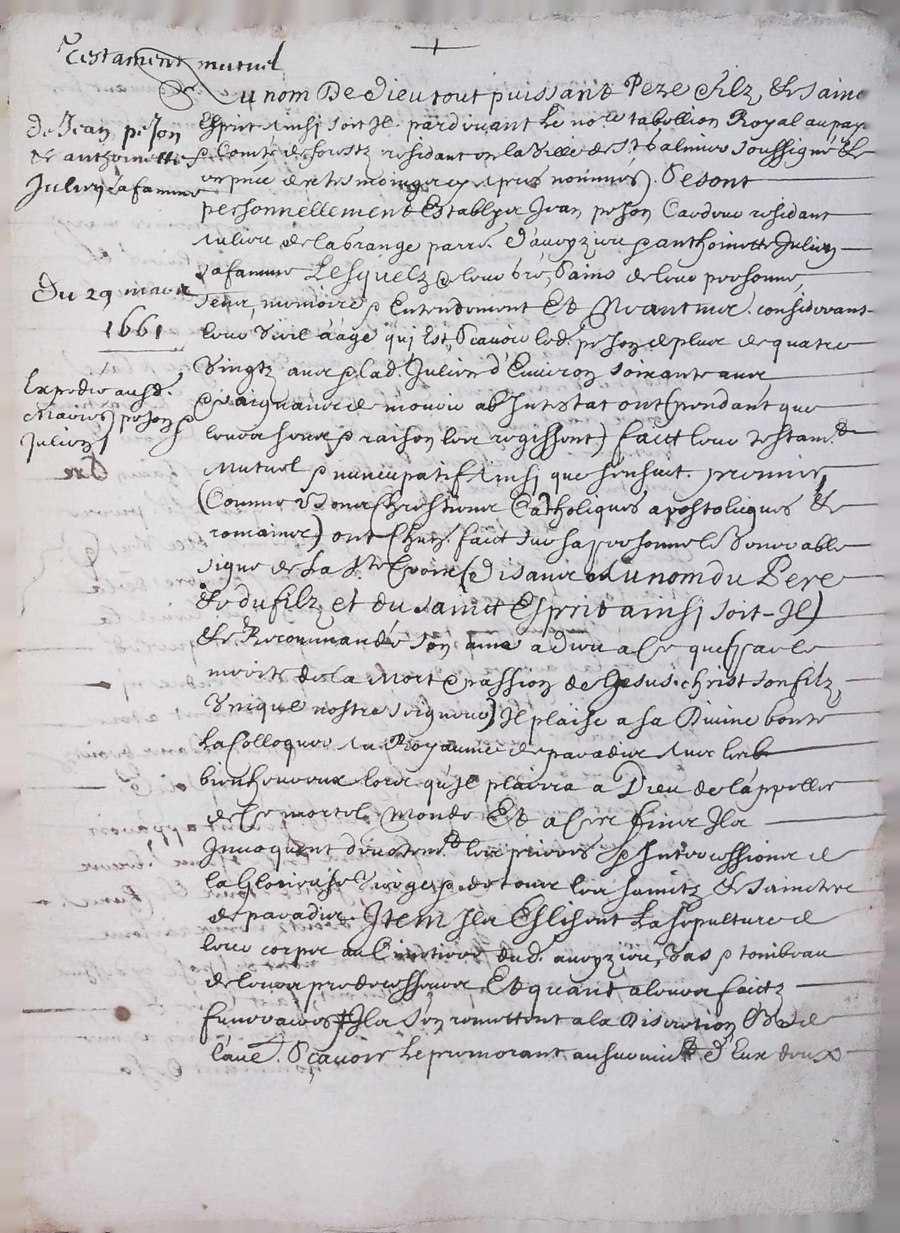 Testament mutuel
de Jean peson
et anthoinette
Jullien sa famme
Du 29 mars
1661
Expedié ausd.
mariés peson
Jullien
Au nom De Dieu tout puissant Pere Filz, et sainct
Esprit Ainsi soit Il pardevant Le no.re tabellion Royal au pays
Comté de forestz residant en la Ville de St Galmier soussigné et
en pnce des tesmoings cy apres nommés, Se sont
personnellement Establys Jean peson Cardeur residant
au lieu de la grange parro. d'aveyzieu & anthoinette Jullien
sa famme Lesquelz de leur gré, Sains de leur personne,
sens, memoire & Entendement Et Neantmoins considerants
leur Vieil aage qui Est, Scavoir led. peson de plus de quatre
Vingtz ans & lad. Jullien d'Environ soixante ans
& craignants de mourir ab Intestat ont (pendant que
leurs sens & raison les regissent) faict leur testam.t
Mutuel & nuncupatif Ainsi que s'ensuit. premier,
(Comme bons Chrestiens Catholiques apostolicques et
romains) ont Chun. faict sur sa personne le Venerable
signe de La Ste Croix (disants Au nom du Pere
et du filz et du sainct Esprit ainsi soit-Il)
et Recommandé son ame a Dieu a Ce que (par le
merite de la Mort & passion de Jesus christ son filz,
Unique nostre seigneur) Il plaise a sa Divine bonté
La Colloquer Au Royaume de paradis Avec les
bienheureux lors qu'Il plaira a Dieu de l'appeller
de Ce mortel Monde Et a Ces fins Ils
Invoquent devotem.t les prieres & Intercessions de
la Glorieuse Vierge & de tous les saincts et sainctes
de paradis. Item Ils Eslisent La sepulture de
leurs corps au Cimetiere dud. aveyzieu, Vas & tombeau
de leurs predecesseurs Et quant a leurs fraictz
funeraires Ils s'en remettent a la Discretion de
l'aue. Scavoir Le premorant au survivt d'Eux deux